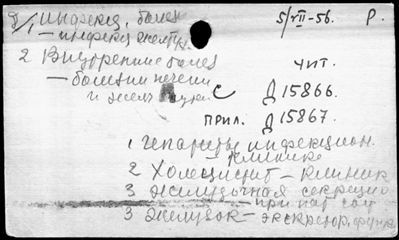 1/ инфекц. болез 5/VII-56. Р.
— инфекц желтух.
2 Внутренние болез
чит.
— болезни печени
и желч пуз. С Д 15866.
прил. Д 15867.
1 гепатиты инфекцион.
— клиника
2 Холецистит — клиник
3 желудочная секрецио
— при пат сост
3 желудок — экскретор. функ